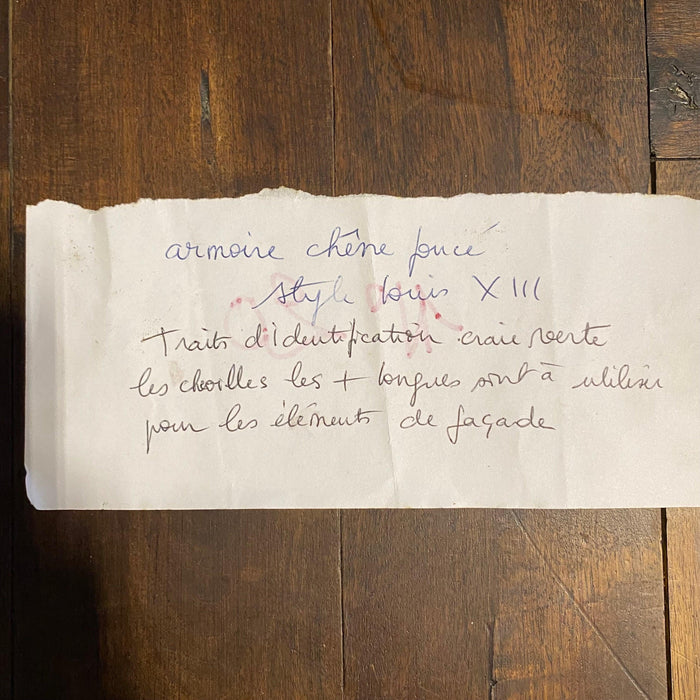 armoire chêne foncé
style Louis XIII
Traits d'identification craie verte
les chevilles les + longues sont à utiliser
pour les éléments de façade